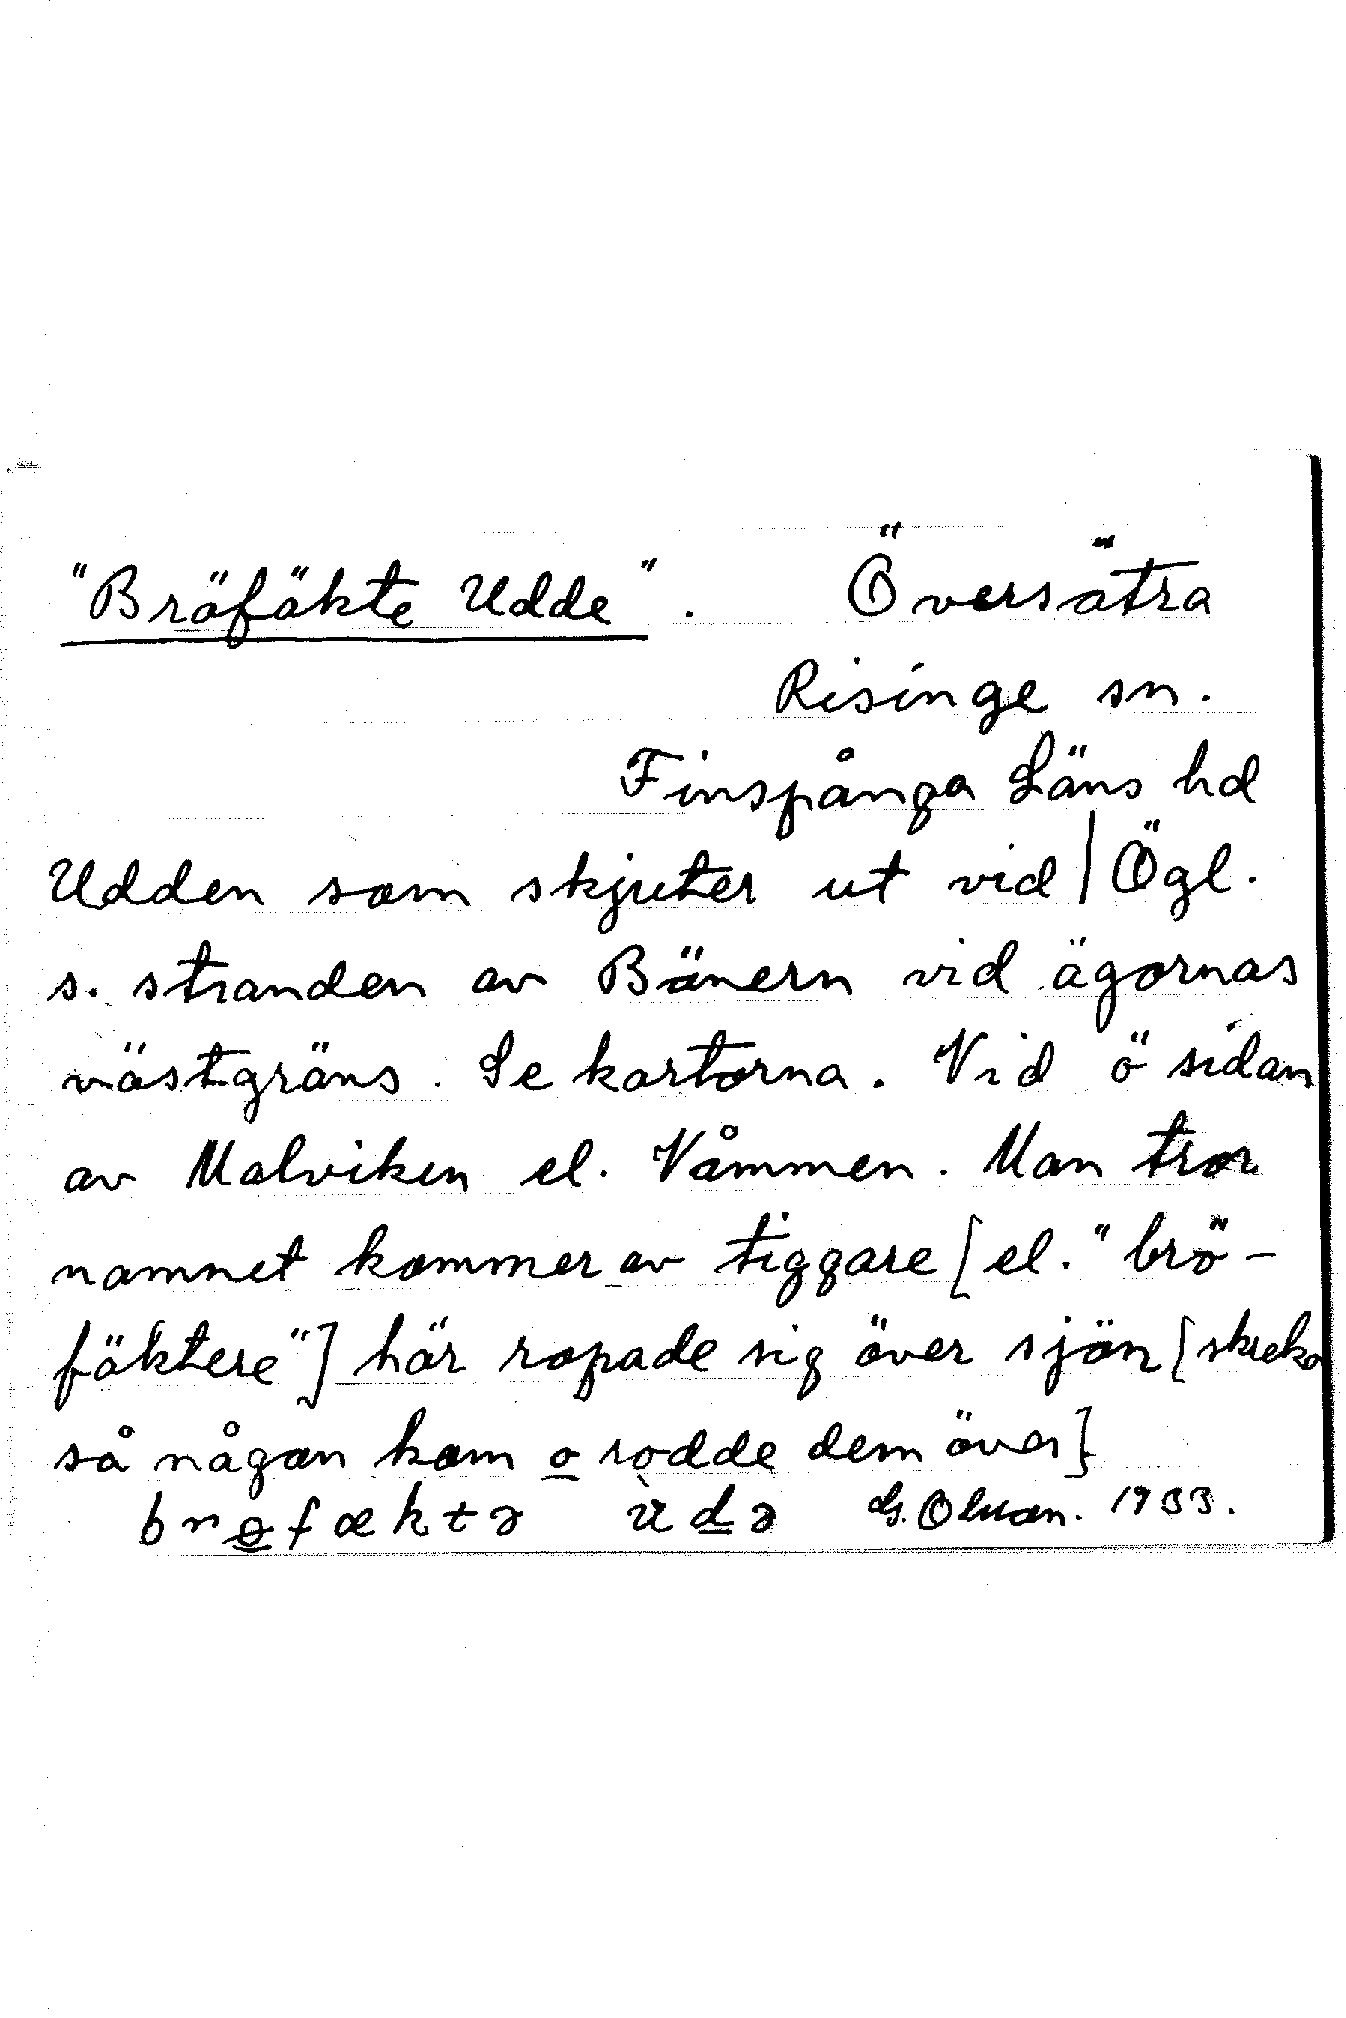 "Bröfäkte Udde". Översätra
Risinge sn.
Finspånga Läns hd
Udden som skjuter ut vid | Ögl.
s. stranden av Bänern vid ägornas
västgräns. Se kartorna. Vid ö sidan
av Malviken el. Våmmen. Man tror
namnet kommer av tiggare [el. "brö-
fäktere"] här ropade sig över sjön [skreko
så någon kom o rodde dem över]
brøfæktə ùdə G. Olsson. 1933.